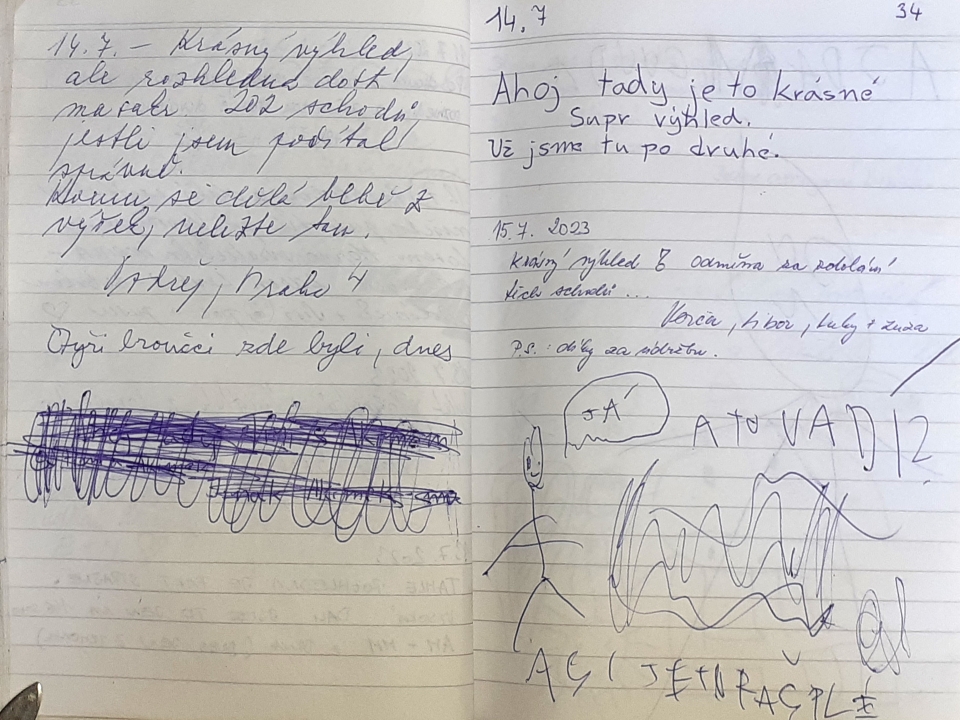 14.7. – Krásný výhled,
ale rozhledna dost
masakr. 202 schodů,
jestli jsem počítal
správně.
Komu se dělá blbě z
výšek, nelezte tam.
Ondřej, Praha 4
Čtyři broučci zde byli, dnes
14.7
34
Ahoj tady je to krásné
Supr výhled.
Už jsme tu po druhé.
15.7. 2023
Krásný výhled & odměna za zdolání
těch schodů ...
Verča, Libor, Luky + Zuza
P.S.: díky za údržbu.
JÁ
A TO VADI?